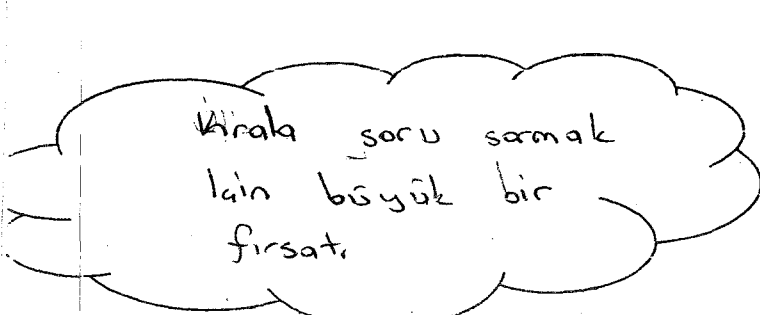 Kirala soru sormak
için büyük bir
fırsatı